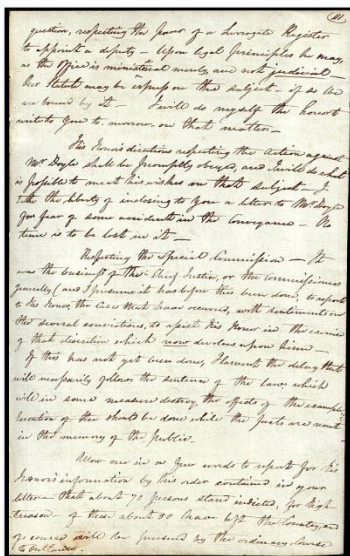 question, respecting the power of a Surrogate Register
to appoint a deputy – Upon legal principles he may,
as the office is ministerial merely, and not judicial –
but Statute may be express on this subject – if so we
are bound by it – I will do myself the honor
write to you to morrow, on that matter –
His Honor's directions respecting the action against
Mr Doyle shall be promptly obeyed, and I will do what
is possible to meet his wishes on that subject – I
take the liberty of inclosing to you a letter to Mr Doyle
for fear of some accident in the Conveyance – No
time is to be lost in it –
Respecting the Special Commission – It
was the business of the Chief Justice, or the Commissioners
generally (and I presume it has before this been done, to report
to His Honor, the Cases that have occurred, with sentiments on
the several convictions, to assist His Honor in the exercise
of that discretion which now devolves upon him –
If this has not yet been done, I lament the delay that
will necessarily follow the sentence of the law, which
will in some measure destroy the effects of the example,
Execution of the should be done while the facts are recent
in the memory of the public.
Allow me in a few words to report for His
Honor's information by his order contained in your
letter – that about 70 persons stand indicted, for High
treason – of these about 50 have left the Country, and
of course will be pursued by the ordinary course
to Outlawry